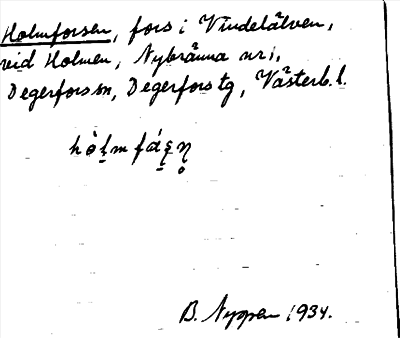 Holmforsen, fors i Vindelälven,
vid Holmen, Nybränna nr 1,
Degerfors sn, Degerfors tg, Västerb. l.
B. Nygren 1934.